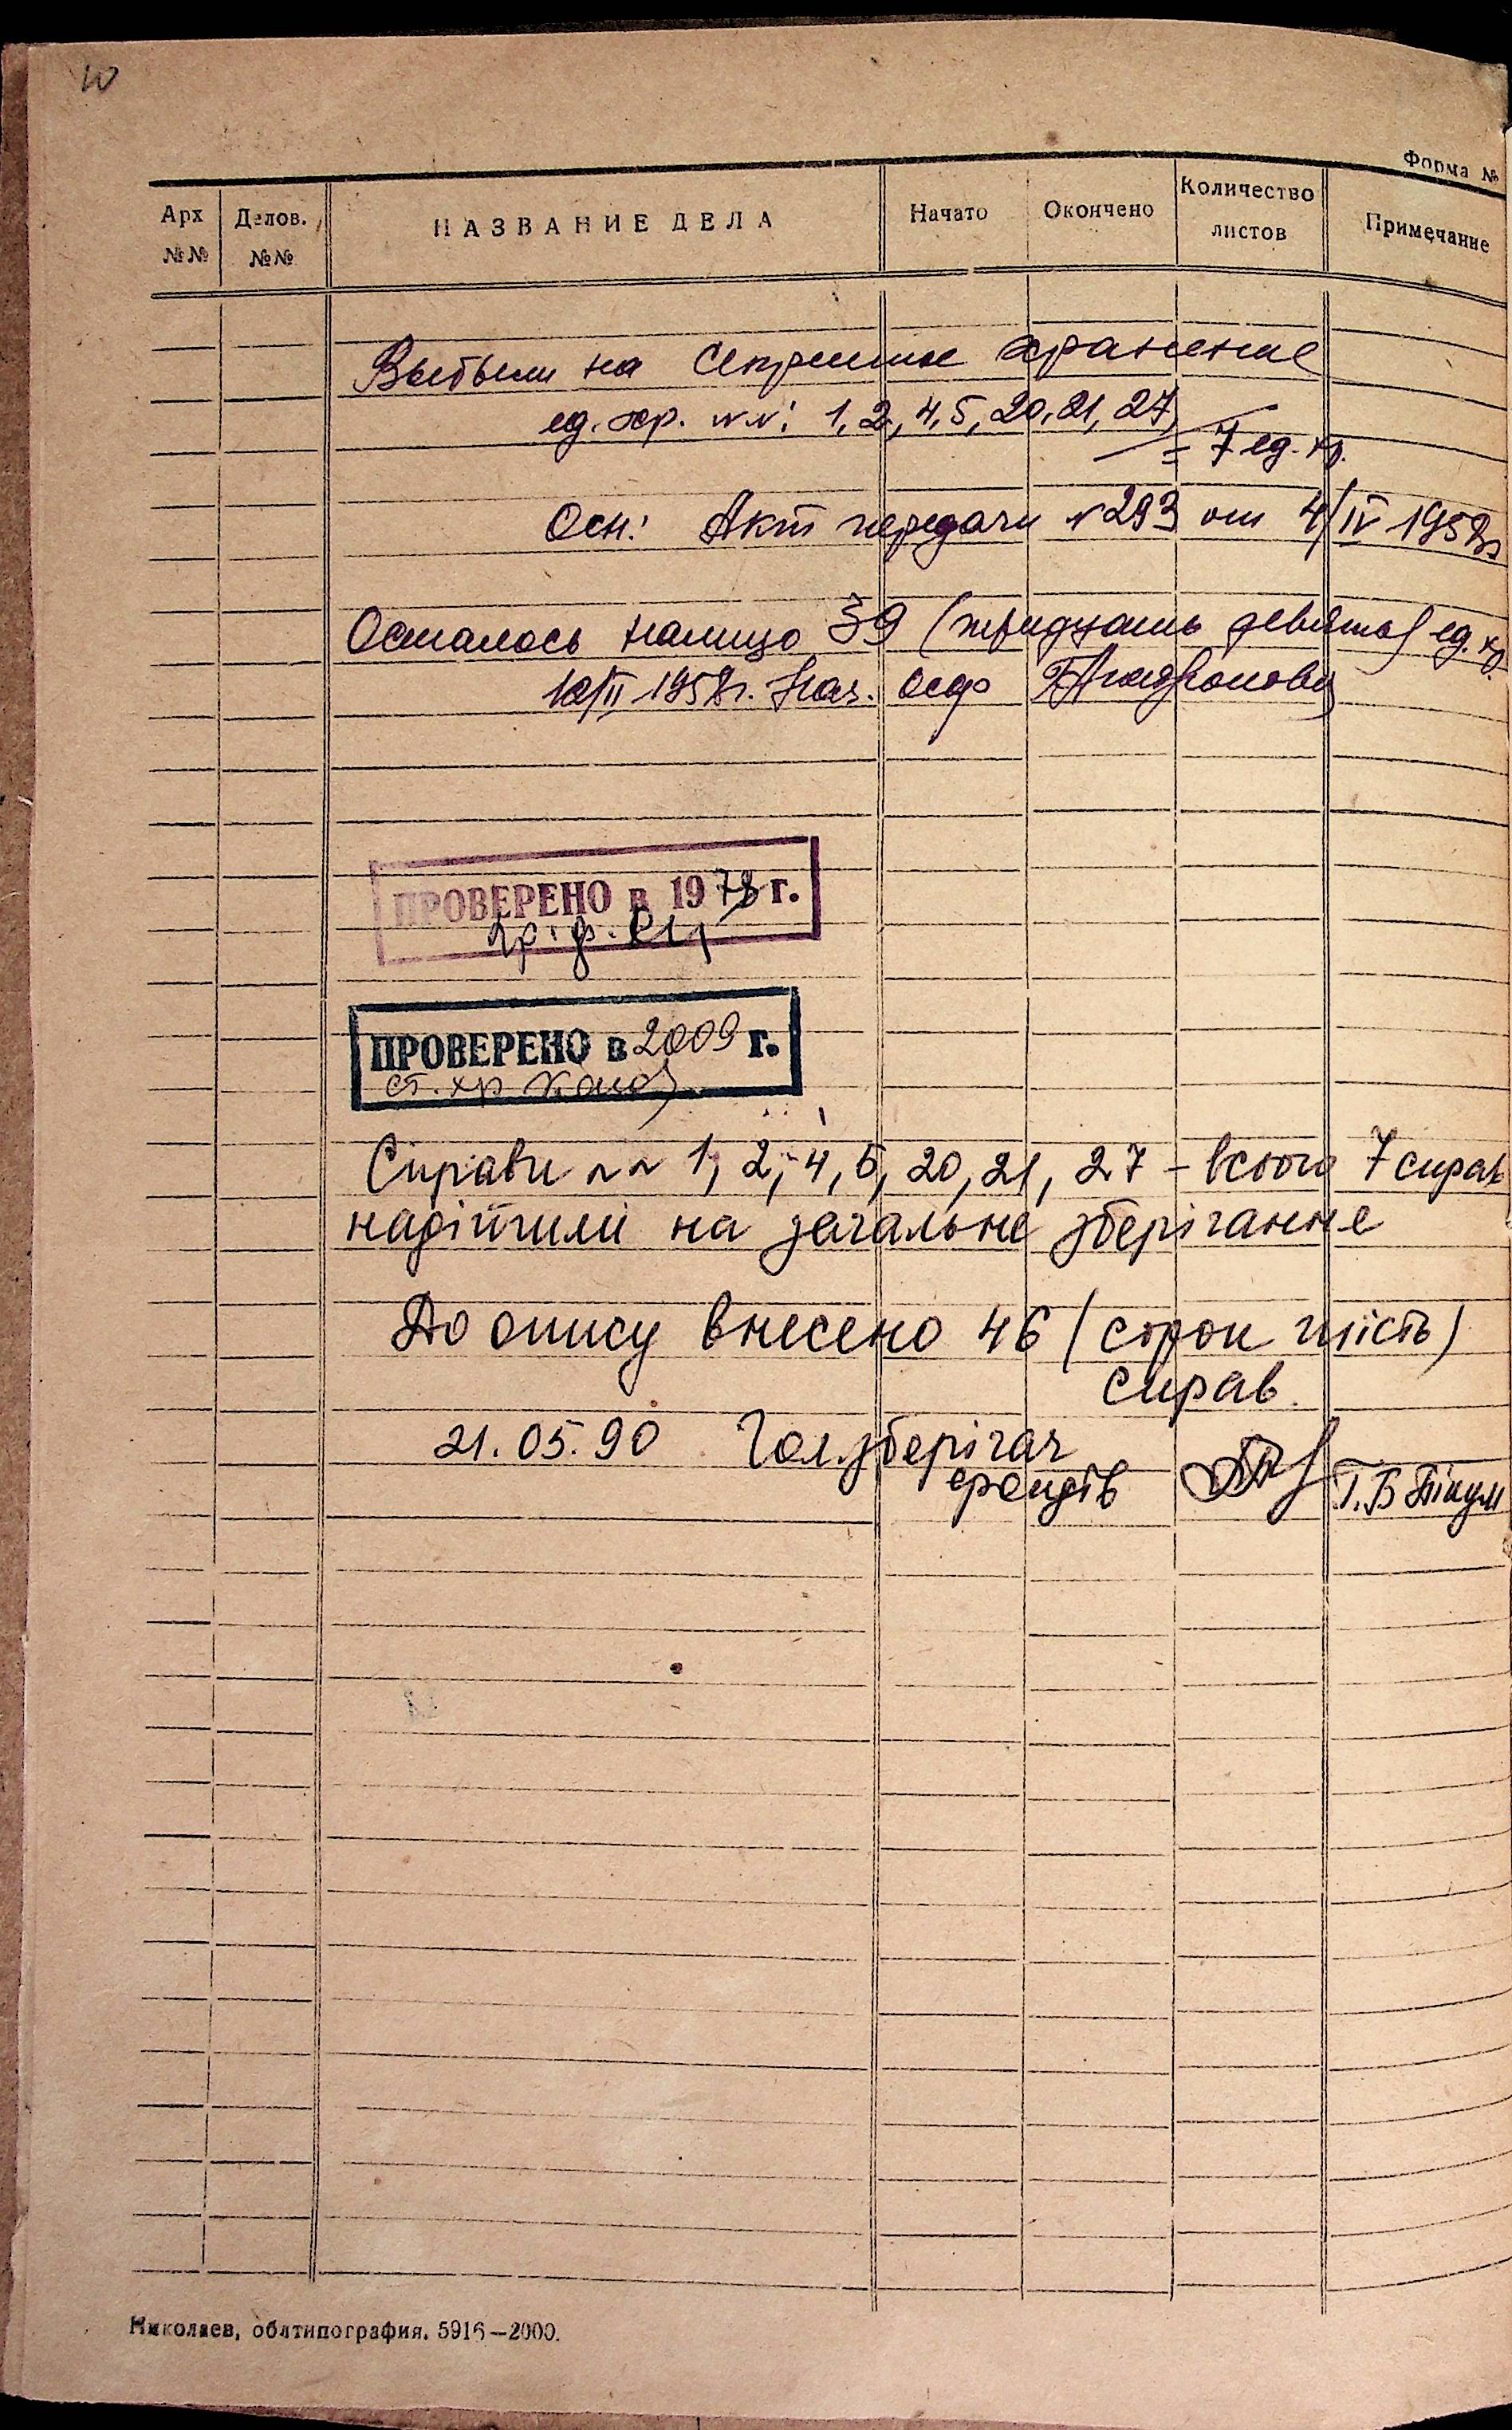 10
Форма №
Арх №№
Делов. №№
НАЗВАНИЕ ДЕЛА
Начато
Окончено
Количество листов
Примечание
Выбыли на секретное хранение
ед. хр. NN: 1, 2, 4, 5, 20, 21, 27
= 7 ед. хр.
Осн: Акт передачи N 293 от 4/IV 1958г
Осталось налицо 39 (тридцать девять) ед. хр.
10/II 1958г. Нач.
ПРОВЕРЕНО в 1978 г.
ПРОВЕРЕНО в 2009 г.
ст. хр
Справи NN 1, 2, 4, 5, 20, 21, 27 – всього 7 справ
надійшли на загальне зберігання
До опису внесено 46 (сорок шість)
справ.
21.05.90 Гол. зберігач
фондів Г.В
Николаев, облтипография. 5916—2000.